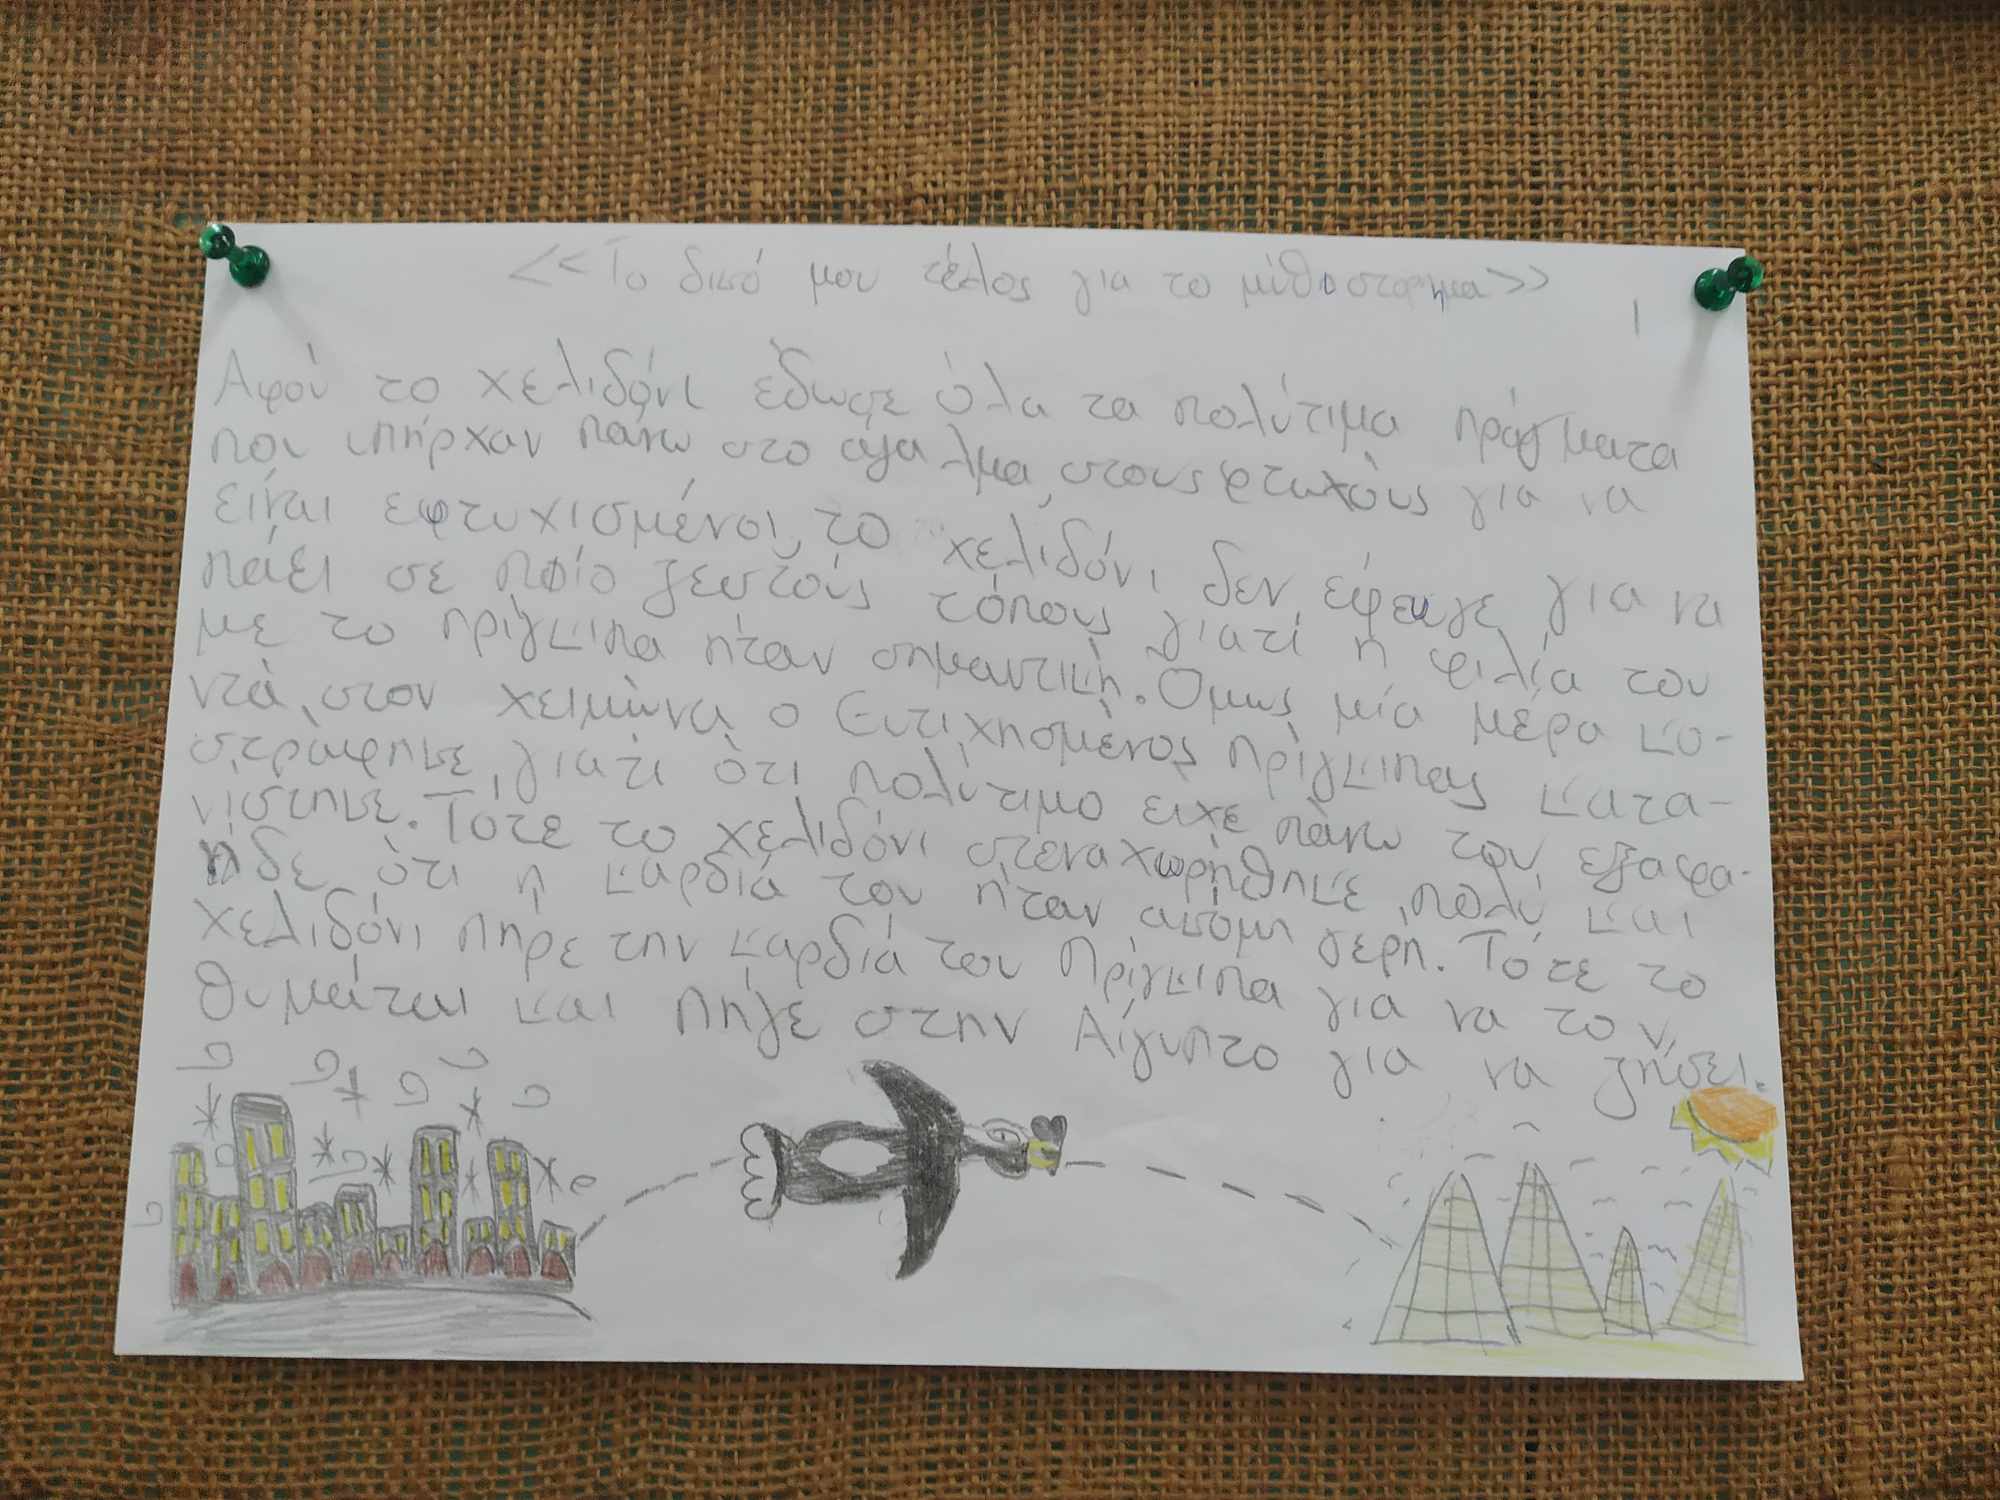 <<Το δικό μου τέλος για το μύθιστορημα>>
1
Αφού το χελιδόνι έδωσε όλα τα πολύτιμα πράγματα
που υπήρχαν πάνω στο άγαλμα, στους φτωχούς για να
είναι εφτυχισμένοι, το χελιδόνι δεν έφευγε για να
πάει σε πιο ζεστούς τόπους γιατί η φιλία του
με το πρίγκιπα ήταν σημαντική. Όμως μία μέρα κο-
ντά, στον χειμώνα ο Ευτιχησμένος πρίγκιπας κατα-
στράφηκε, γιατί ότι πολύτιμο είχε πάνω του εξαφα-
νίστηκε. Τότε το χελιδόνι στεναχωρήθηκε πολύ και
είδε ότι η καρδιά του ήταν ακόμη γερή. Τότε το
χελιδόνι πήρε την καρδιά του Πρίγκιπα για να τον
θυμάται και πήγε στην Αίγυπτο για να ζήσει.